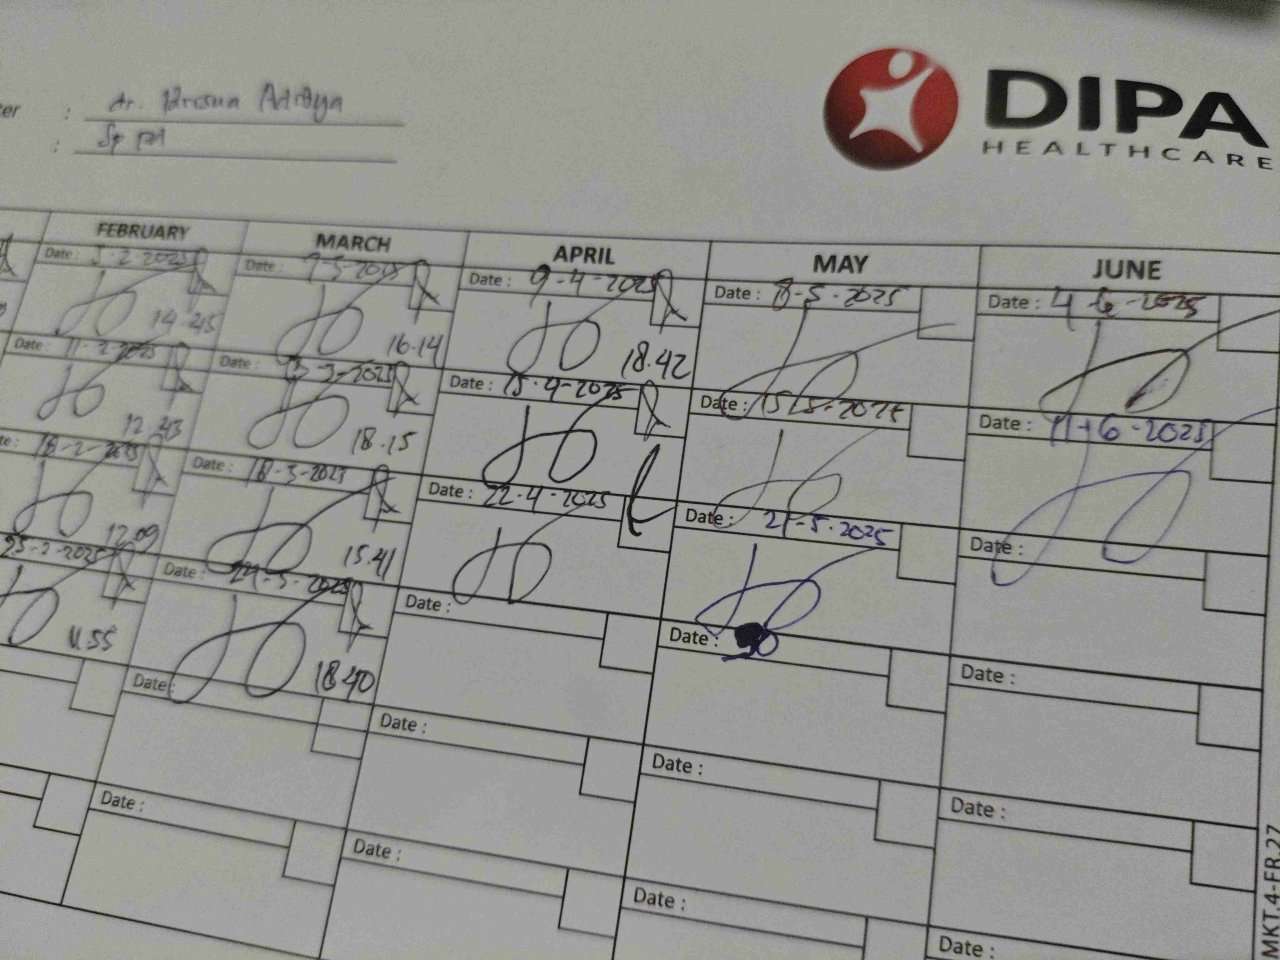 DIPA
HEALTHCARE
: Dr. Krisna Aditya
: Sp PD
FEBRUARY MARCH APRIL MAY JUNE
Date : 3-2-2025 Date : Date : 9-4-2025 Date : 8-5-2025 Date : 4-6-2025
14.45 16.14 18.42
Date : 11-2-2025 Date : Date : 15-4-2025 Date : 15-5-2025 Date : 11-6-2025
12.43 18.15
18-2-2025 Date : 18-3-2025 Date : 22-4-2025 Date : 21-5-2025 Date :
12.09 15.41
25-2-2025 Date : 24-3-2025 Date : Date : Date :
11.55 18.40
Date : Date : Date : Date :
Date : Date : Date : Date :
MKT.4-FR.27